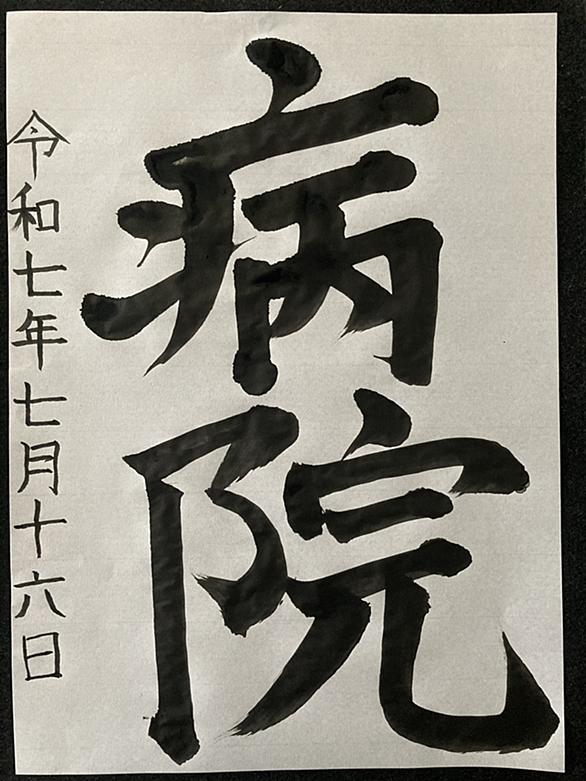 病院
令和七年七月十六日